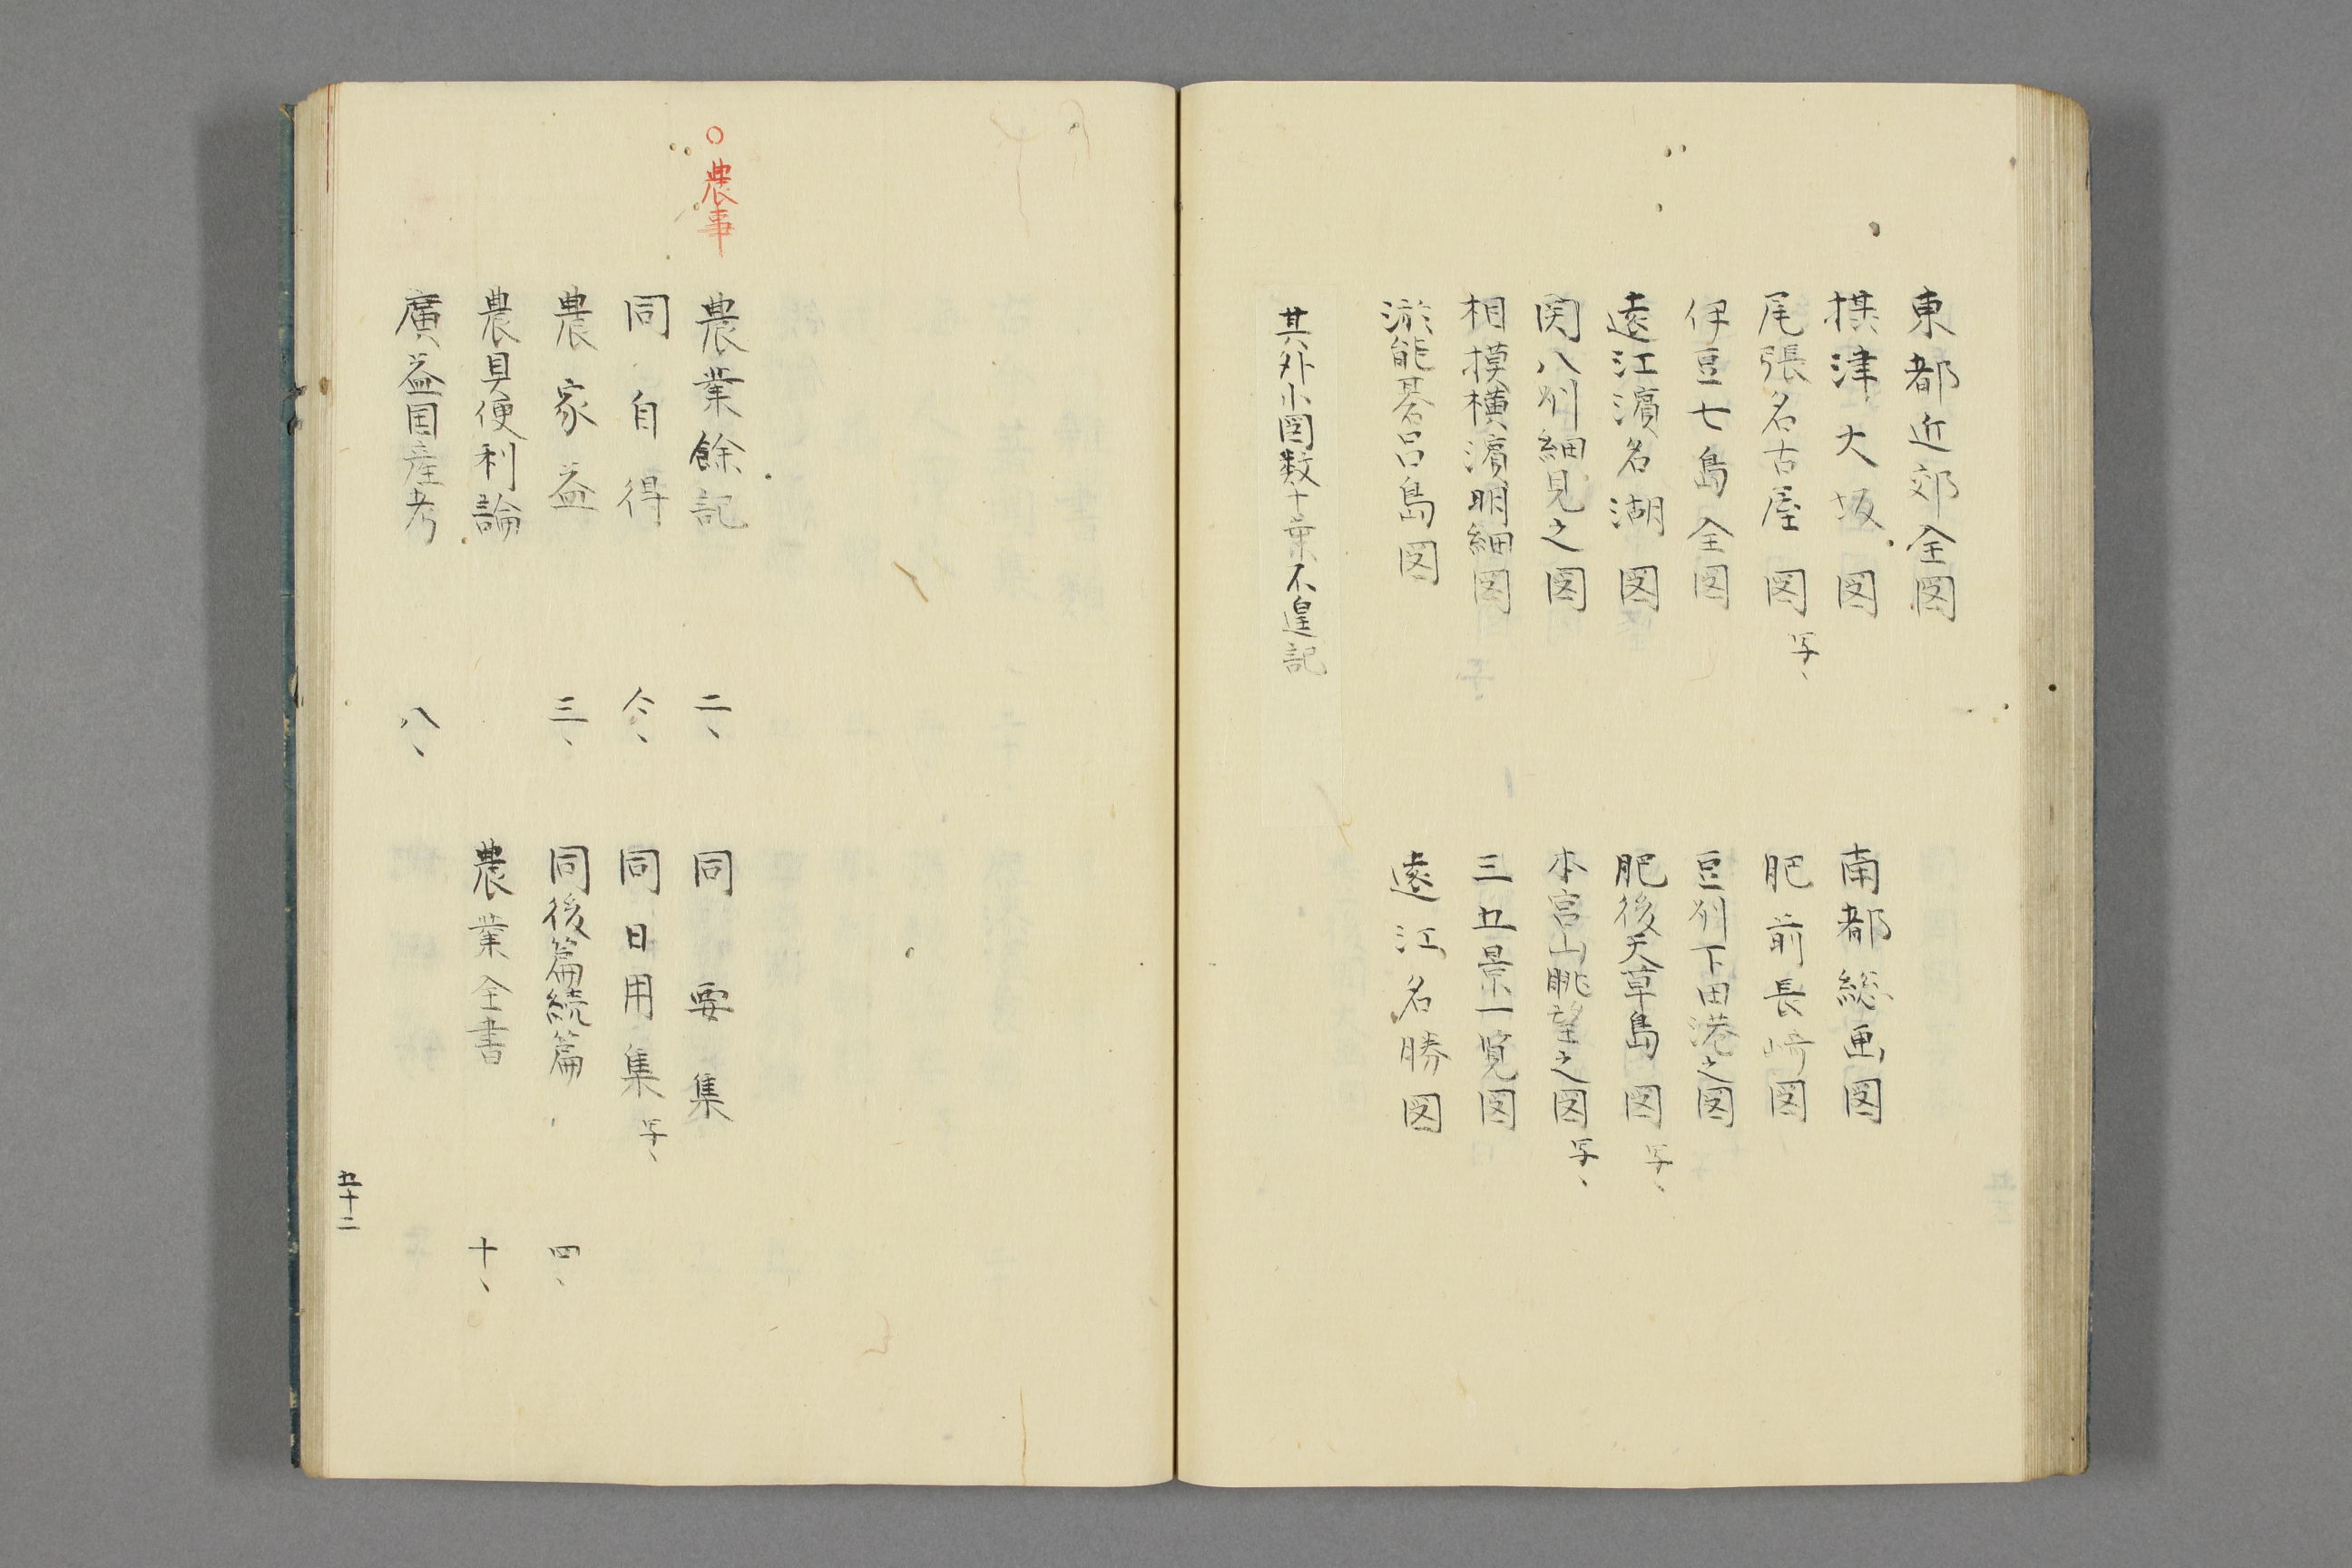 東都近郊全図
摂津大坂図　南都総画図
尾張名古屋図写、　肥前長崎図
伊豆七島全図　豆州下田港之図
遠江濱名湖図　肥後天草島図写、
関八州細見之図　本宮山眺望之図写、
相摸横濱明細図　三五景一覧図
淤能碁呂島図　遠江名勝図
其外小図数十葉不遑記
○農事
農業餘記　二、　同要集
同自得　仝、　同日用集写、
農家益　三、　同後篇続篇　四、
農具便利論　農業全書　十、
廣益国産考　八、
五十二